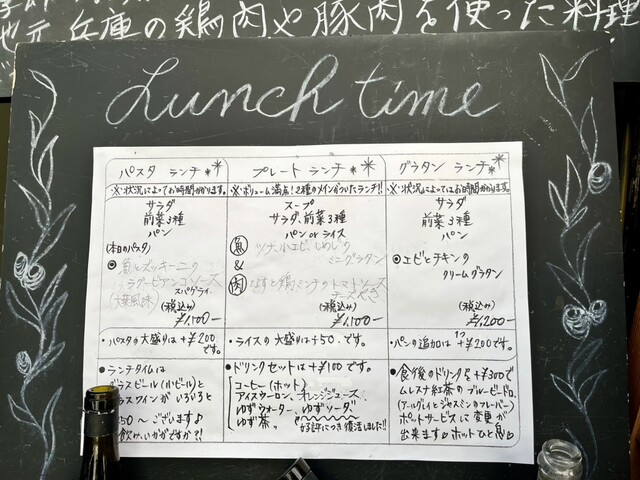 地元兵庫の鶏肉や豚肉を使った料理
Lunch time
パスタ ランチ
※状況によってお時間かかります。
サラダ
前菜3種
パン
(本日のパスタ)
ズッキーニの
ソース
スパゲティ
(大葉風味)
(税込み)
¥1,100-
・パスタの大盛りは+¥200
です。
◎ランチタイムは
グラスビール(小ビール)と
グラスワインがいろいろと
50～ございます♪
飲み、いかがですか?!
プレート ランチ
※ボリューム満点!2種のメインがついたランチ!!
スープ
サラダ、前菜3種
パン or ライス
魚
ツナ、小エビ、しめじの
ミニグラタン
&
肉
なすと鶏ミンチのトマトソース
チーズ焼き
(税込み)
¥1,100-
・ライスの大盛りは+50-です。
◎ドリンクセットは+¥100です。
コーヒー(ホット)
アイスウーロン、オレンジジュース、
ゆずウォーター、ゆずソーダ、
ゆず茶。
好評につき復活しました!!
グラタン ランチ
※状況によってはお時間かかります。
サラダ
前菜3種
パン
◎エビとチキンの
クリームグラタン
(税込み)
¥1,200-
・パンの追加は1つ+¥200です。
◎食後のドリンクを+¥300で
ムレスナ紅茶のブルービードロ。
(アールグレイとジャスミンのフレーバー)
ポットサービスに変更が
出来ます♡ホットひと息♡